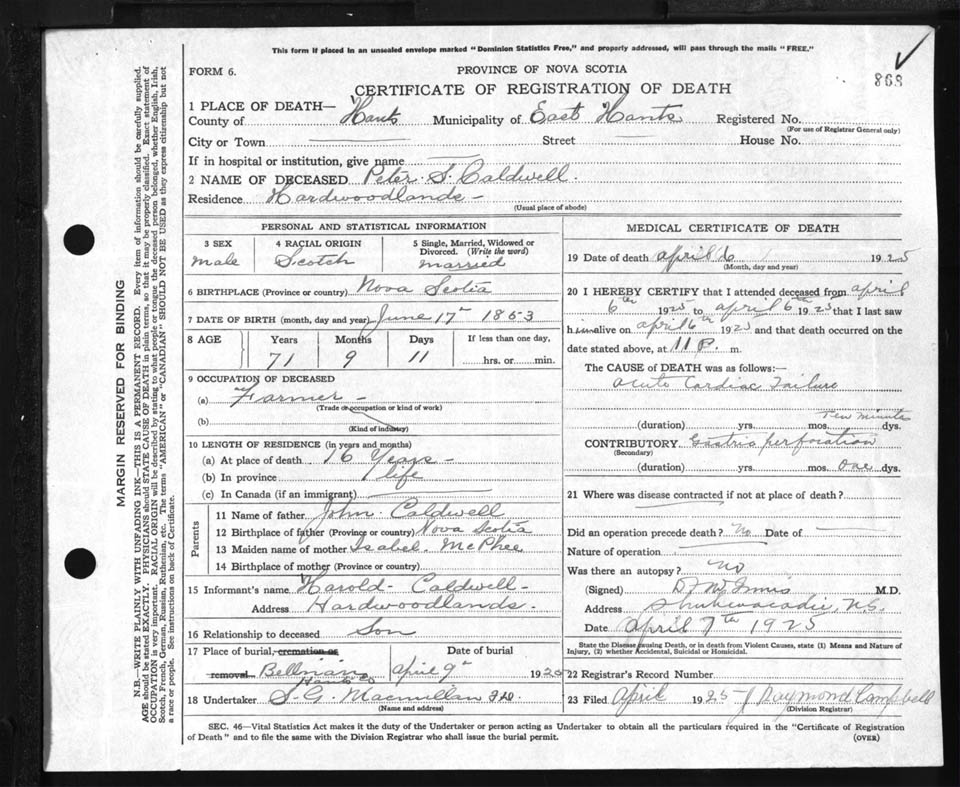 This form if placed in an unsealed envelope marked "Dominion Statistics Free," and properly addressed, will pass through the mails "FREE."
FORM 6.
PROVINCE OF NOVA SCOTIA
868
CERTIFICATE OF REGISTRATION OF DEATH
1 PLACE OF DEATH—
County of Hants Municipality of East Hants Registered No.
(For use of Registrar General only)
City or Town Street House No.
If in hospital or institution, give name
2 NAME OF DECEASED Peter S. Caldwell.
Residence Hardwoodlands -
(Usual place of abode)
PERSONAL AND STATISTICAL INFORMATION
3 SEX 4 RACIAL ORIGIN 5 Single, Married, Widowed or Divorced. (Write the word)
male Scotch married
6 BIRTHPLACE (Province or country) Nova Scotia
7 DATE OF BIRTH (month, day and year) June 17th 1853
8 AGE Years Months Days If less than one day,
71 9 11 hrs. or min.
9 OCCUPATION OF DECEASED
(a) Farmer -
(Trade or occupation or kind of work)
(b)
(Kind of industry)
10 LENGTH OF RESIDENCE (in years and months)
(a) At place of death 76 Years -
(b) In province life
(c) In Canada (if an immigrant)
Parents
11 Name of father John Caldwell
12 Birthplace of father (Province or country) Nova Scotia
13 Maiden name of mother Isabel McPhee
14 Birthplace of mother (Province or country)
15 Informant's name Harold Caldwell -
Address Hardwoodlands.
16 Relationship to deceased Son
17 Place of burial, cremation or removal Date of burial
Hants Co April 9th 1925
18 Undertaker S. G. Macmillan
(Name and address)
MEDICAL CERTIFICATE OF DEATH
19 Date of death April 6 1925
(Month, day and year)
20 I HEREBY CERTIFY that I attended deceased from April
6th 1925 to April 6th 1925 that I last saw
him alive on April 6th 1925 and that death occurred on the
date stated above, at 11 P. m.
The CAUSE of DEATH was as follows:—
Acute Cardiac Failure
Ten minutes
(duration) yrs. mos. dys.
CONTRIBUTORY Gastric perforation
(Secondary)
(duration) yrs. mos. one dys.
21 Where was disease contracted if not at place of death?
Did an operation precede death? No Date of
Nature of operation
Was there an autopsy? no
(Signed) M.D.
Address Shubenacadie, N.S.
Date April 7th 1925
State the Disease causing Death, or in death from Violent Causes, state (1) Means and Nature of Injury, (2) whether Accidental, Suicidal or Homicidal.
22 Registrar's Record Number
23 Filed April 1925 J Raymond Campbell
(Division Registrar)
SEC. 46—Vital Statistics Act makes it the duty of the Undertaker or person acting as Undertaker to obtain all the particulars required in the "Certificate of Registration
of Death" and to file the same with the Division Registrar who shall issue the burial permit.
(OVER)
MARGIN RESERVED FOR BINDING
N.B.—WRITE PLAINLY WITH UNFADING INK—THIS IS A PERMANENT RECORD. Every item of information should be carefully supplied.
AGE should be stated EXACTLY. PHYSICIANS should STATE CAUSE OF DEATH in plain terms, so that it may be properly classified. Exact statement of
OCCUPATION is very important. RACIAL ORIGIN will be described by stating to what people or tongue the deceased person belonged, whether English, Irish,
Scotch, French, German, Russian, Ruthenian, etc. The terms "AMERICAN" or "CANADIAN" SHOULD NOT BE USED as they express citizenship but not
a race or people. See instructions on back of Certificate.